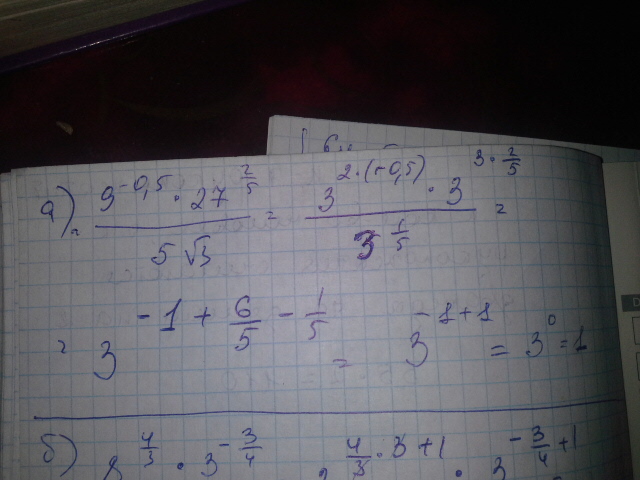 а) (9^(-0,5) · 27^(2/5)) / (5√3) = (3^(2·(-0,5)) · 3^(3·2/5)) / 3^(1/5) =
= 3^(-1 + 6/5 - 1/5) = 3^(-1+1) = 3^0 = 1
б) 8^(4/3) · 3^(-3/4) 4/3·3+1 · 3^(-3/4+1)